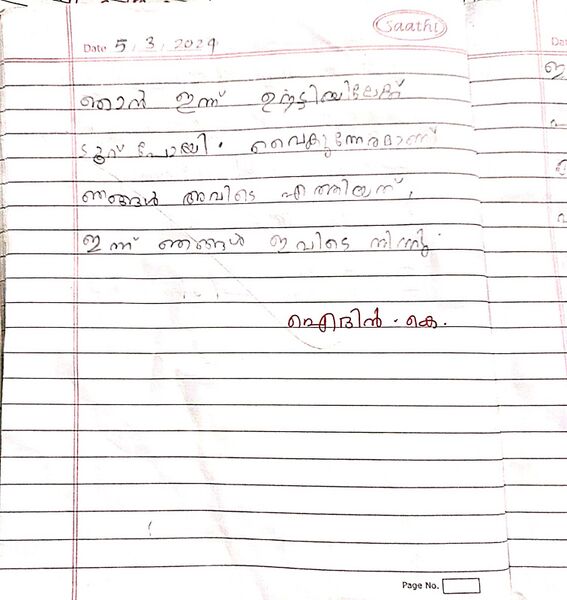 Saathi
Date 5, 3, 2024
ഞാൻ ഇന്ന് ഊട്ടിയിലേക്ക്
ടൂറ് പോയി. വൈകുന്നേരമാണ്
ഞങ്ങൾ അവിടെ എത്തിയത്,
ഇന്ന് ഞങ്ങൾ ഇവിടെ നിന്നു.
ഐദിൻ. കെ.
Page No.